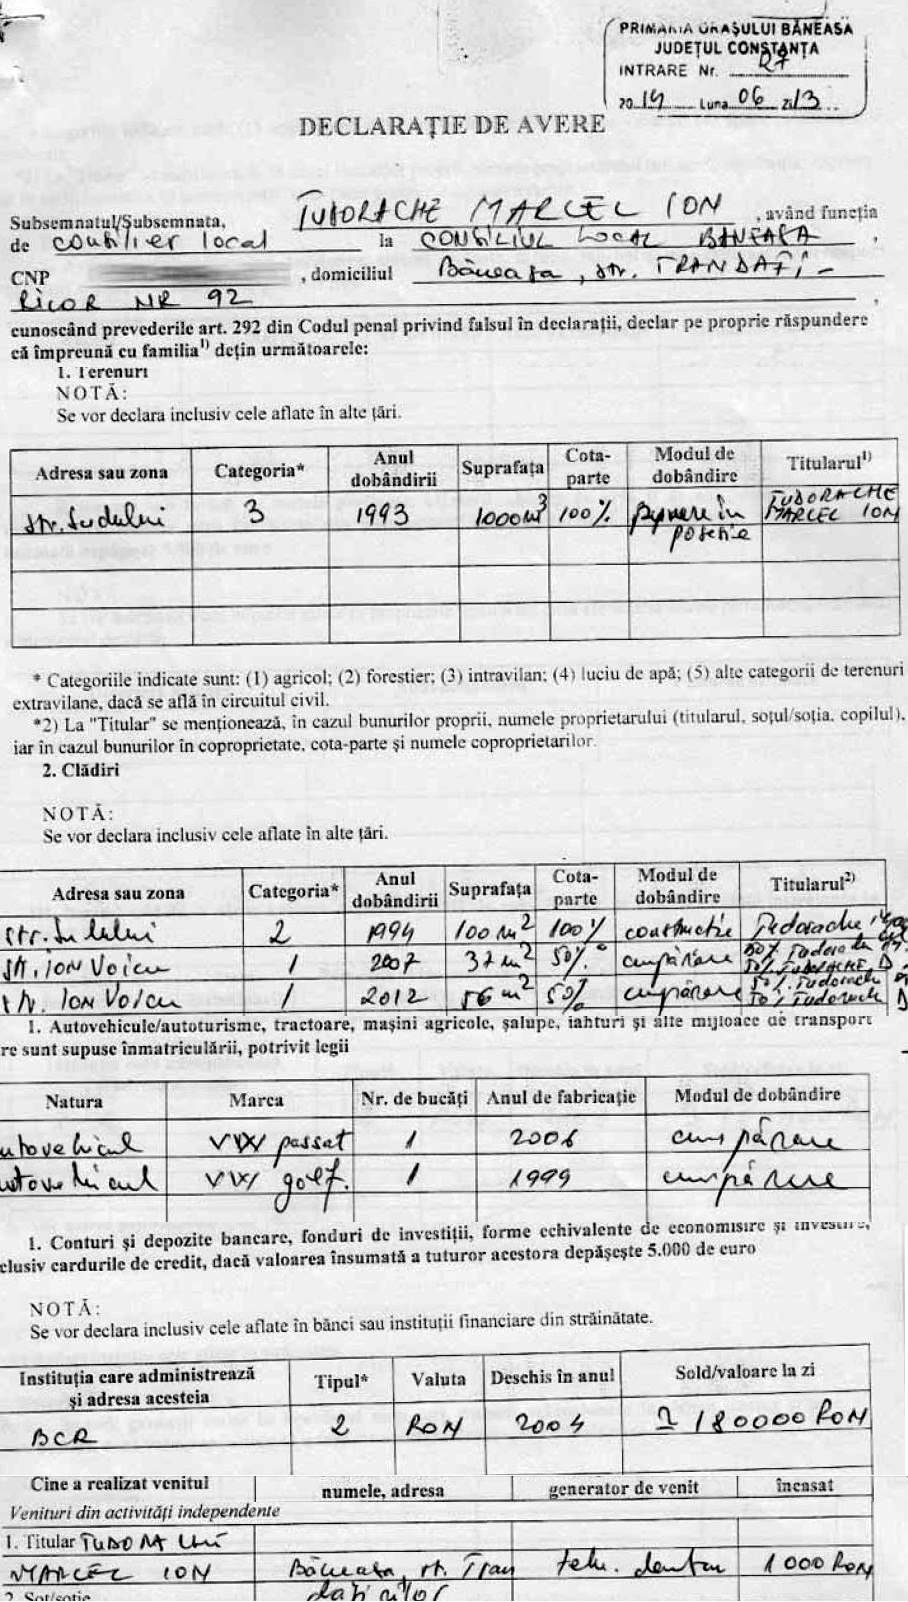 PRIMĂRIA ORAȘULUI BĂNEASA
JUDEȚUL CONSTANȚA
INTRARE Nr. 27
2014 Luna 06 Zi 13
DECLARAȚIE DE AVERE
Subsemnatul/Subsemnata, TUDORACHE MARCEL ION , având funcția
de consilier local la CONSILIUL LOCAL BANEASA ,
CNP , domiciliul Băneasa, str. TRANDAFI-
RILOR NR 92 ,
cunoscând prevederile art. 292 din Codul penal privind falsul în declarații, declar pe proprie răspundere
că împreună cu familia1) dețin următoarele:
1. Terenuri
NOTĂ:
Se vor declara inclusiv cele aflate în alte țări.
Adresa sau zona Categoria* Anul dobândirii Suprafața Cota-parte Modul de dobândire Titularul1)
str. Sudului 3 1993 1000 m3 100% punere în posesie TUDORACHE MARCEL ION
* Categoriile indicate sunt: (1) agricol; (2) forestier; (3) intravilan; (4) luciu de apă; (5) alte categorii de terenuri
extravilane, dacă se află în circuitul civil.
*2) La "Titular" se menționează, în cazul bunurilor proprii, numele proprietarului (titularul, soțul/soția, copilul),
iar în cazul bunurilor în coproprietate, cota-parte și numele coproprietarilor.
2. Clădiri
NOTĂ:
Se vor declara inclusiv cele aflate în alte țări.
Adresa sau zona Categoria* Anul dobândirii Suprafața Cota-parte Modul de dobândire Titularul2)
str. Sudului 2 1994 100 m2 100% constructie Tudorache
str. ION Voicu 1 2007 37 m2 50% cumpărare 50% Tudorache M. 50% TUDORACHE D
str. ION Voicu 1 2012 56 m2 50% cumpărare 50% Tudorache 50% Tudorache D
1. Autovehicule/autoturisme, tractoare, mașini agricole, șalupe, iahturi și alte mijloace de transport
re sunt supuse înmatriculării, potrivit legii
Natura Marca Nr. de bucăți Anul de fabricație Modul de dobândire
autovehicul VW passat 1 2006 cumpărare
autovehicul VW golf. 1 1999 cumpărare
1. Conturi și depozite bancare, fonduri de investiții, forme echivalente de economisire și investire,
clusiv cardurile de credit, dacă valoarea însumată a tuturor acestora depășește 5.000 de euro
NOTĂ:
Se vor declara inclusiv cele aflate în bănci sau instituții financiare din străinătate.
Instituția care administrează și adresa acesteia Tipul* Valuta Deschis în anul Sold/valoare la zi
BCR 2 RON 2004 ≃ 180000 RON
Cine a realizat venitul numele, adresa generator de venit încasat
Venituri din activități independente
1. Titular TUDORACHE
MARCEL ION Băneasa, str. Tran tehn. dentar 1000 RON
2. Soț/soție dafirilor